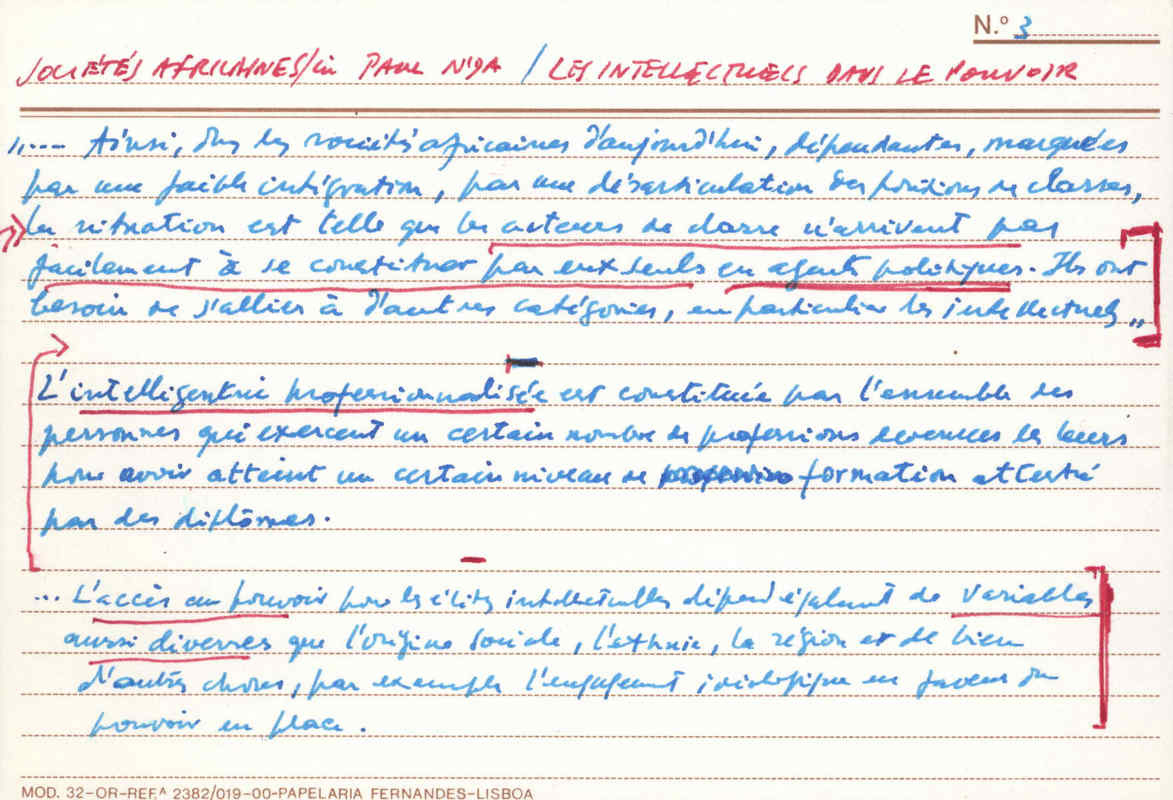 N.º 3
SOCIÉTÉS AFRICAINES/in PAUL N'DA / LES INTELLECTUELS DANS LE POUVOIR
".... Ainsi, dans les sociétés africaines d'aujourd'hui, dépendantes, marquées
par une faible intégration, par une désarticulation des positions de classes,
la situation est telle que les acteurs de classe n'arrivent pas
facilement à se constituer par eux seuls en agents politiques. Ils ont
besoin de s'allier à d'autres catégories, en particulier les intellectuels"
L'intelligentsia professionnalisée est constituée par l'ensemble des
personnes qui exercent un certain nombre de professions devenues les leurs
pour avoir atteint un certain niveau de formation attesté
par des diplômes.
... L'accès au pouvoir pour les élites intellectuelles dépend également de variables
aussi diverses que l'origine sociale, l'ethnie, la région et de bien
d'autres choses, par exemple l'engagement idéologique en faveur du
pouvoir en place.
MOD. 32-OR-REF.ᴬ 2382/019-00-PAPELARIA FERNANDES-LISBOA